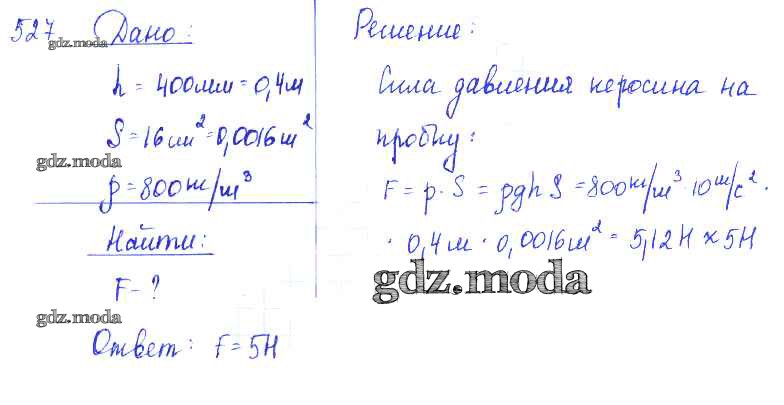 527 Дано:
gdz.moda
h = 400мм = 0,4м
S = 16см² = 0,0016м²
gdz.moda
ρ = 800кг/м³
Найти:
F - ?
gdz.moda
Ответ: F = 5Н
Решение:
Сила давления керосина на
пробку:
F = p · S = ρgh S = 800кг/м³ · 10м/с² ·
· 0,4м · 0,0016м² = 5,12Н ≈ 5Н
gdz.moda